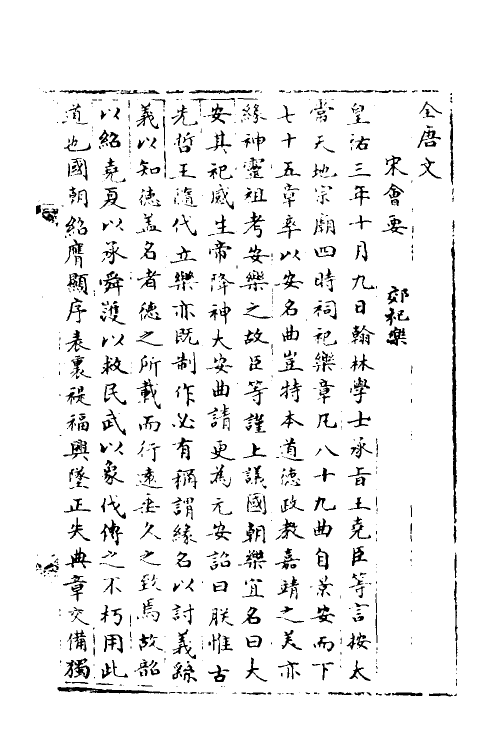 全唐文
宋會要 郊祀樂
皇祐三年十月九日翰林學士承旨王堯臣等言按太
常天地宗廟四時祠祀樂章凡八十九曲自景安而下
七十五章率以安名曲豈特本道德政教嘉靖之美亦
緣神靈祖考安樂之故臣等謹上議國朝樂宜名曰大
安其祀感生帝降神大安曲請更為元安詔曰朕惟古
先哲王隨代立樂亦既制作必有稱謂緣名以討義繇
義以知德蓋名者德之所載而行遠垂久之致焉故韶
以紹堯夏以承舜濩以救民武以象伐傳之不朽用此
道也國朝紹膺顯序表裏禔福興墜正失典章交備獨